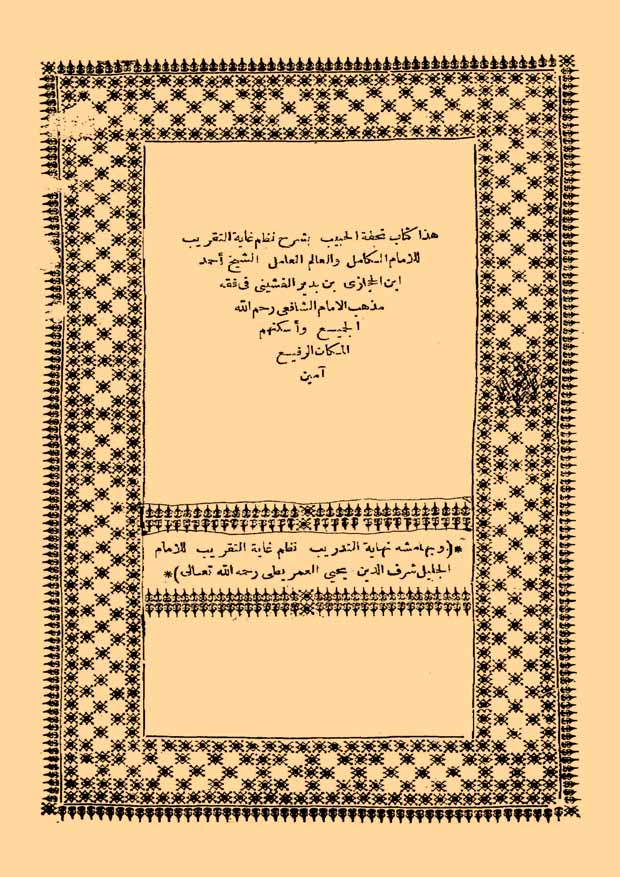 هذا كتاب تحفة الحبيب بشرح نظم غاية التقريب
للامام الكامل والعالم العامل الشيخ أحمد
ابن الحجازى بن بدير الفشينى فى فقه
مذهب الامام الشافعى رحم الله
الجميع وأسكنهم
المكان الرفيع
آمين
*(وبهامشه نهاية التدريب نظم غاية التقريب للامام
الجليل شرف الدين يحيى العمريطى رحمه الله تعالى)*